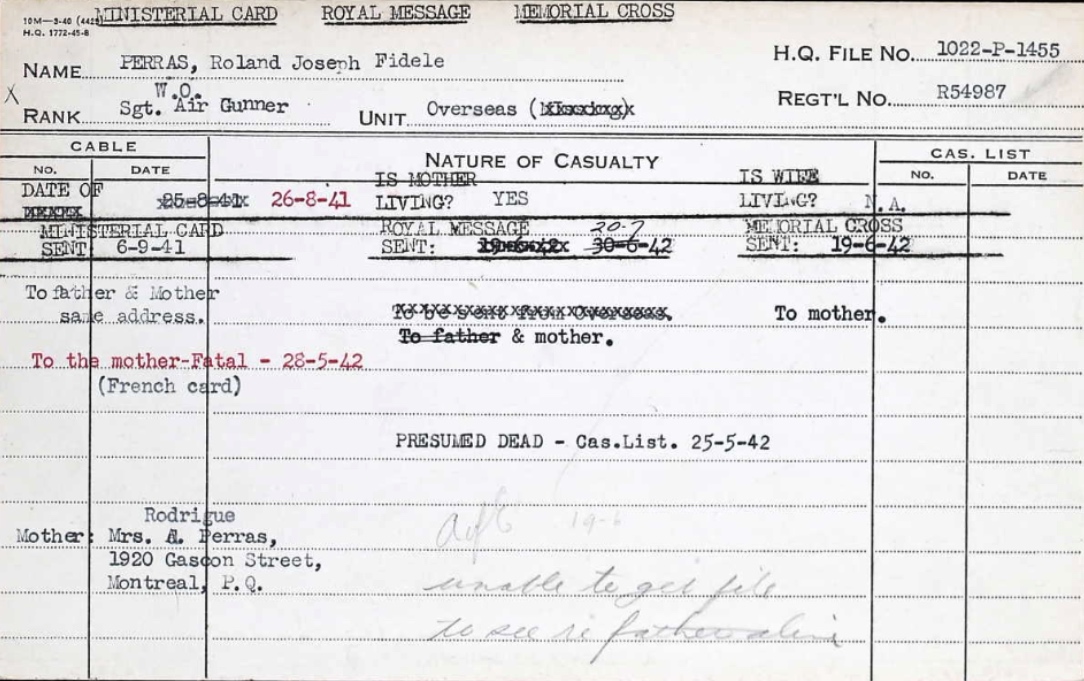 MINISTERIAL CARD ROYAL MESSAGE MEMORIAL CROSS
10M—3-40 (442
H.Q. 1772-45-8
NAME PERRAS, Roland Joseph Fidele H.Q. FILE NO. 1022-P-1455
X W.O.
RANK Sgt. Air Gunner UNIT Overseas ( REGT'L NO. R54987
CABLE NATURE OF CASUALTY CAS. LIST
NO. DATE NO. DATE
DATE OF 25-8-41 26-8-41 IS MOTHER LIVING? YES IS WIFE LIVING? N.A.
DEATH
MINISTERIAL CARD ROYAL MESSAGE 20-7 MEMORIAL CROSS
SENT: 6-9-41 SENT: 19-6-42 30-6-42 SENT: 19-6-42
To father & Mother
same address. To be sent from Overseas. To mother.
To father & mother.
To the mother-Fatal - 28-5-42
(French card)
PRESUMED DEAD - Cas.List. 25-5-42
Rodrigue
Mother: Mrs. A. Perras,
1920 Gascon Street,
Montreal, P.Q.
19-6
unable to get file
to see re father alive